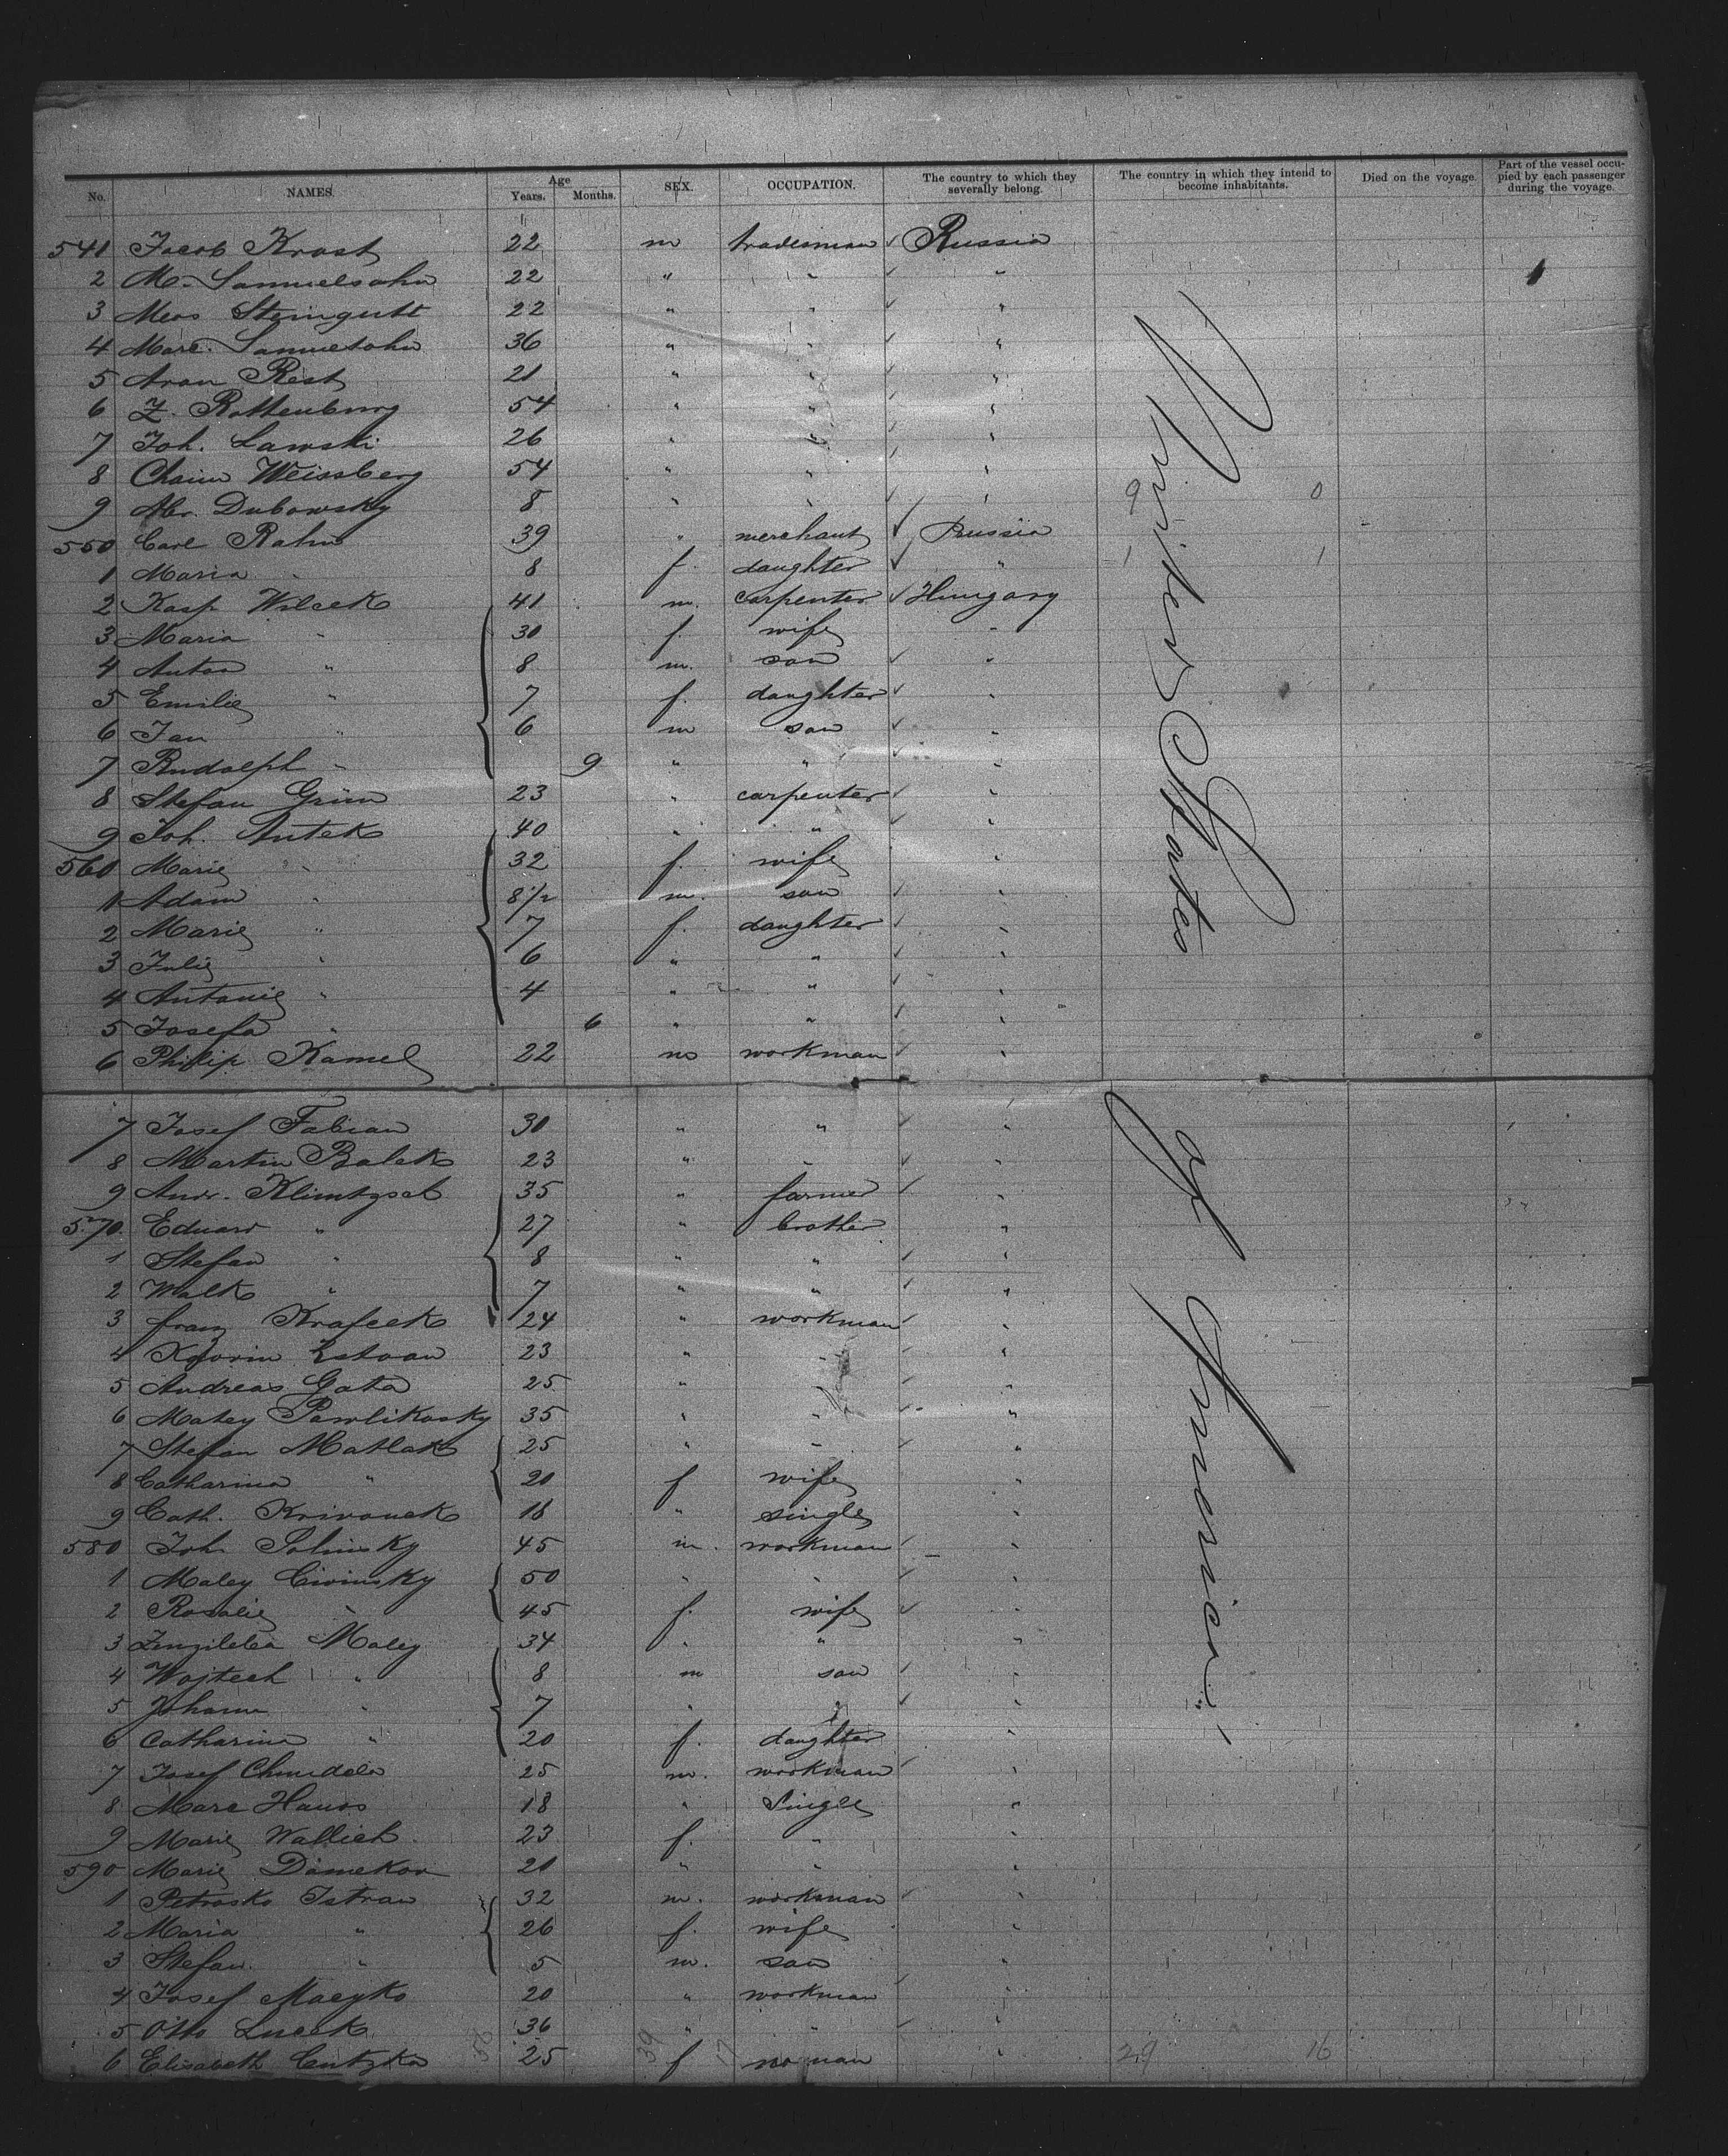 No. NAMES. Age Years. Months. SEX. OCCUPATION. The country to which they severally belong. The country in which they intend to become inhabitants. Died on the voyage. Part of the vessel occupied by each passenger during the voyage.
541 Jacob Krost 22 m tradesman ✓ Russia
2 M. Samuelsohn 22 " " ✓ "
3 Meos Steingutt 22 " " ✓ "
4 Marc. Samuelsohn 36 " " ✓ "
5 Aron Rest 21 " " ✓ "
6 Z. Rottenburg 54 " " ✓ "
7 Joh. Lawski 26 " " ✓ "
8 Chaim Weissberg 54 " " ✓ "
9 Abr. Dubowsky 8 " " ✓ " 9 0
550 Carl Rahn 39 " merchant ✓ Prussia
1 Maria " 8 f. daughter ✓ " 1 1
2 Kasp. Wilcek 41 m. carpenter ✓ Hungary
3 Maria " 30 f. wife "
4 Anton " 8 m. son ✓ "
5 Emilie " 7 f. daughter ✓ "
6 Jan " 6 m son ✓ "
7 Rudolph " 9 " " ✓ "
8 Stefan Grün 23 " carpenter ✓ "
9 Joh. Antek 40 " " ✓ "
560 Marie " 32 f. wife "
1 Adam " 8 1/2 m. son ✓ "
2 Marie " 7 f. daughter ✓ "
3 Julie " 6 " " ✓ "
4 Antonie " 4 " " ✓ "
5 Josefa " 6 " " ✓ "
6 Philip Kamel 22 m workman ✓ "
7 Josef Fabian 30 " " ✓ "
8 Martin Balek 23 " " ✓ "
9 Andr. 35 " farmer ✓
570 Eduard " 27 " brother "
1 Stefan " 8 " " ✓ "
2 Walk " 7 " " ✓ "
3 Franz 24 " workman ✓ "
4 23 " " ✓ "
5 Andreas Gata 25 " " ✓ "
6 Matey Pawlikosky 35 " " ✓ "
7 Stefan Matlak 25 " " ✓ "
8 Catharina " 20 f wife "
9 Cath. Krivanek 18 " single "
580 Joh. Solinsky 45 m. workman ✓ "
1 Maley Civinsky 50 " " ✓ "
2 Rosalie " 45 f. wife ✓ "
3 Maley 34 " " "
4 Wojtech " 8 m son ✓ "
5 Johann " 7 " " ✓ "
6 Catharina " 20 f. daughter "
7 Josef Chmidela 25 m. workman ✓ "
8 Marc Hauos 18 " Single "
9 Marie Wallich 23 f. " "
590 Marie Damekov 20 " " "
1 Petrasko Istvan 32 m. workman ✓ "
2 Maria " 26 f. wife "
3 Stefan " 5 m. son "
4 Josef Maeyko 20 " workman "
5 Otto Lucek 36 " " ✓ "
6 Elisabeth 25 f woman " 29 16
56 39 17
United States of America